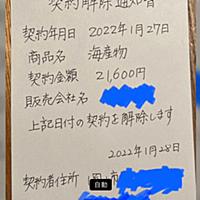 契約解除通知書
契約年月日 2022年1月27日
商品名 海産物
契約金額 21,600円
販売会社名
上記日付の契約を解除します
2022年1月28日
契約者住所
自動